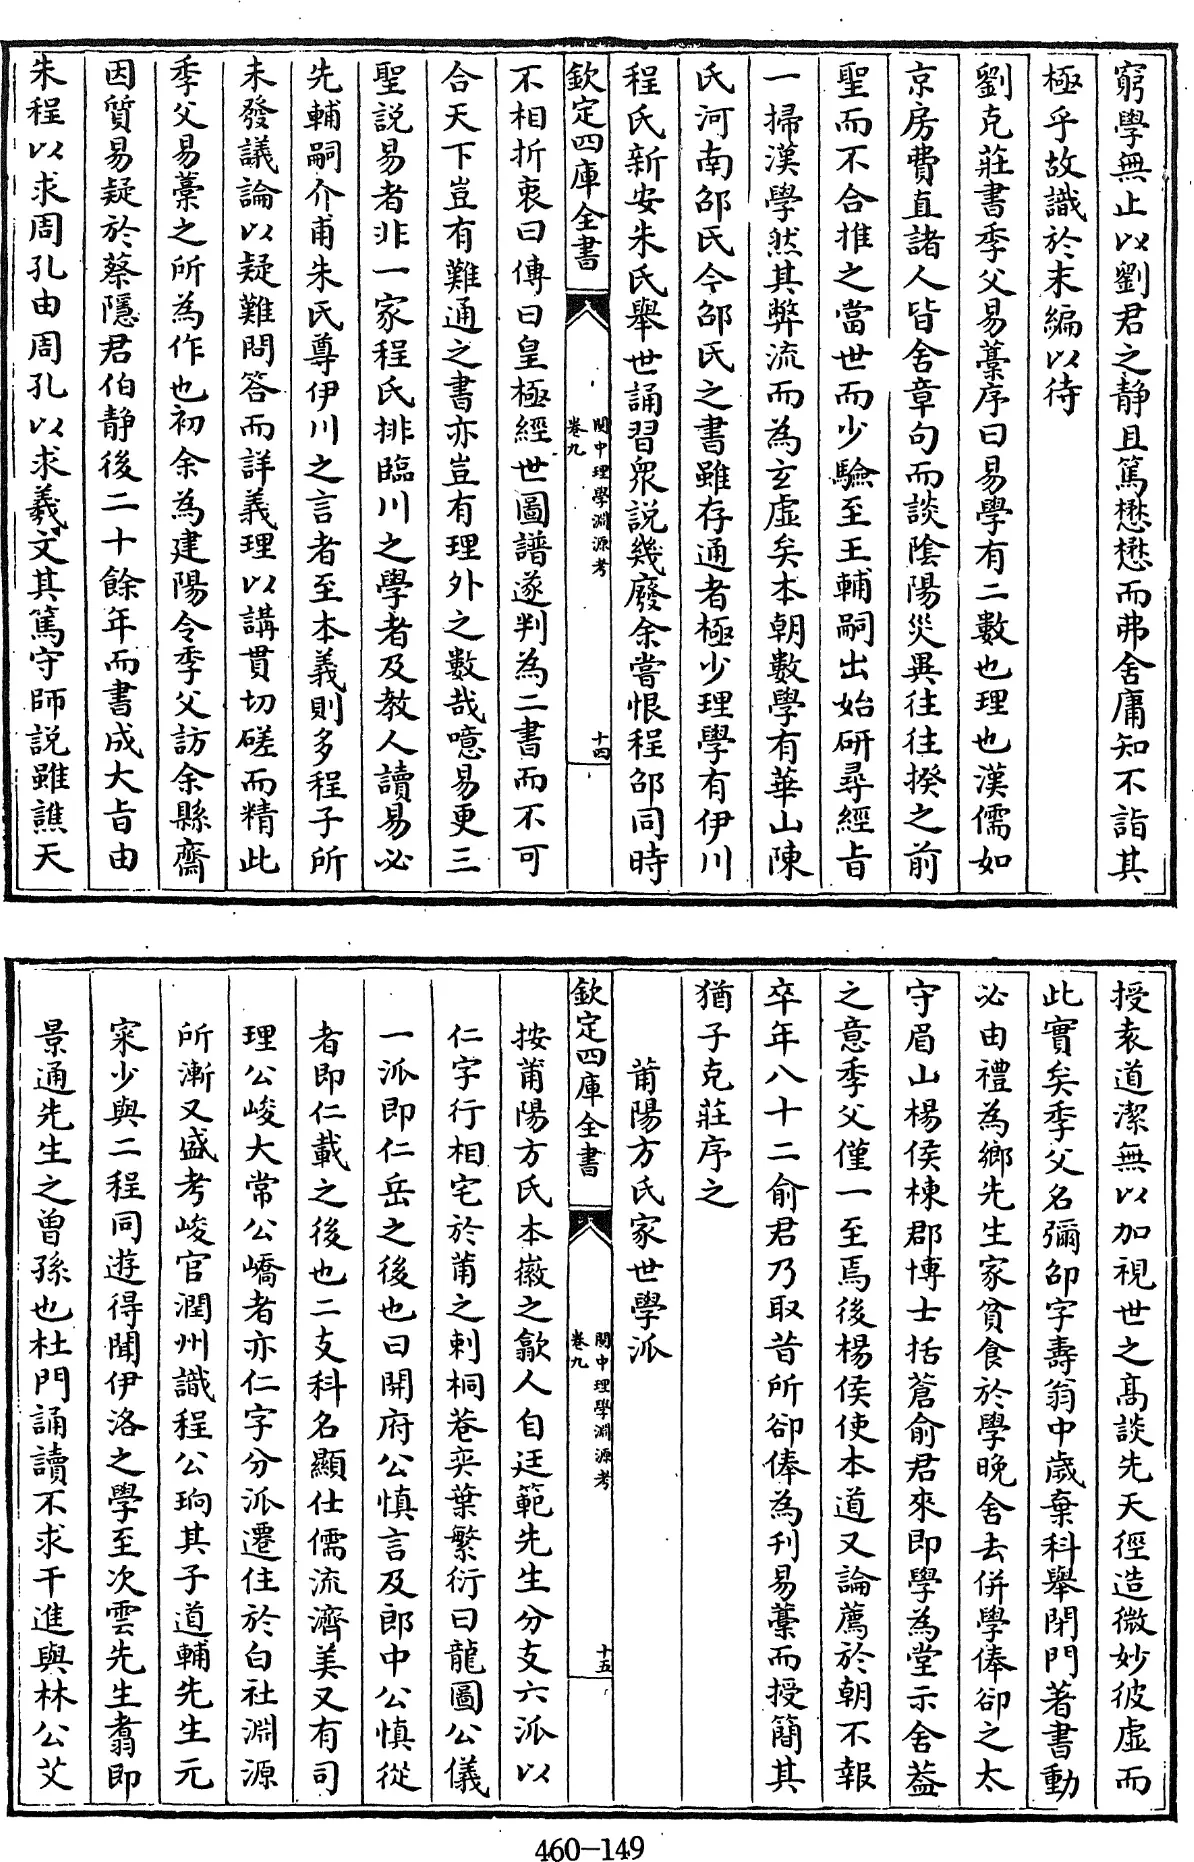 窮學無止以劉君之静且篤懋懋而弗舍庸知不詣其
極乎故識於末編以待
劉克莊書季父易藁序曰易學有二數也理也漢儒如
京房費直諸人皆舍章句而談陰陽災異往往揆之前
聖而不合推之當世而少驗至王輔嗣出始研尋經旨
一掃漢學然其弊流而為玄虛矣本朝數學有華山陳
氏河南邵氏今邵氏之書雖存通者極少理學有伊川
程氏新安朱氏舉世誦習衆説幾廢余嘗恨程邵同時
欽定四庫全書
閩中理學淵源考
卷九
十四
不相折衷曰傳曰皇極經世圖譜遂判為二書而不可
合天下豈有難通之書亦豈有理外之數哉噫易更三
聖説易者非一家程氏排臨川之學者及教人讀易必
先輔嗣介甫朱氏尊伊川之言者至本義則多程子所
未發議論以疑難問答而詳義理以講貫切磋而精此
季父易藁之所為作也初余為建陽令季父訪余縣齋
因質易疑於蔡隱君伯静後二十餘年而書成大旨由
朱程以求周孔由周孔以求羲文其篤守師説雖譙天
授袁道潔無以加視世之髙談先天徑造微妙彼虚而
此實矣季父名彌卲字壽翁中歳棄科舉閉門著書動
必由禮為鄉先生家貧食於學晚舍去併學俸卻之太
守眉山楊侯棟郡博士括蒼俞君來即學為堂示舍葢
之意季父僅一至焉後楊侯使本道又論薦於朝不報
卒年八十二俞君乃取昔所卻俸為刊易藁而授簡其
猶子克莊序之
莆陽方氏家世學派
欽定四庫全書
閩中理學淵源考
卷九
十五
按莆陽方氏本徽之歙人自廷範先生分支六派以
仁字行相宅於莆之刺桐巷奕葉繁衍曰龍圖公儀
一派即仁岳之後也曰開府公慎言及郎中公慎從
者即仁載之後也二支科名顯仕儒流濟美又有司
理公峻大常公嶠者亦仁字分派遷住於白社淵源
所漸又盛考峻官潤州識程公珦其子道輔先生元
寀少與二程同遊得聞伊洛之學至次雲先生翥即
景通先生之曾孫也杜門誦讀不求干進與林公艾
460-149